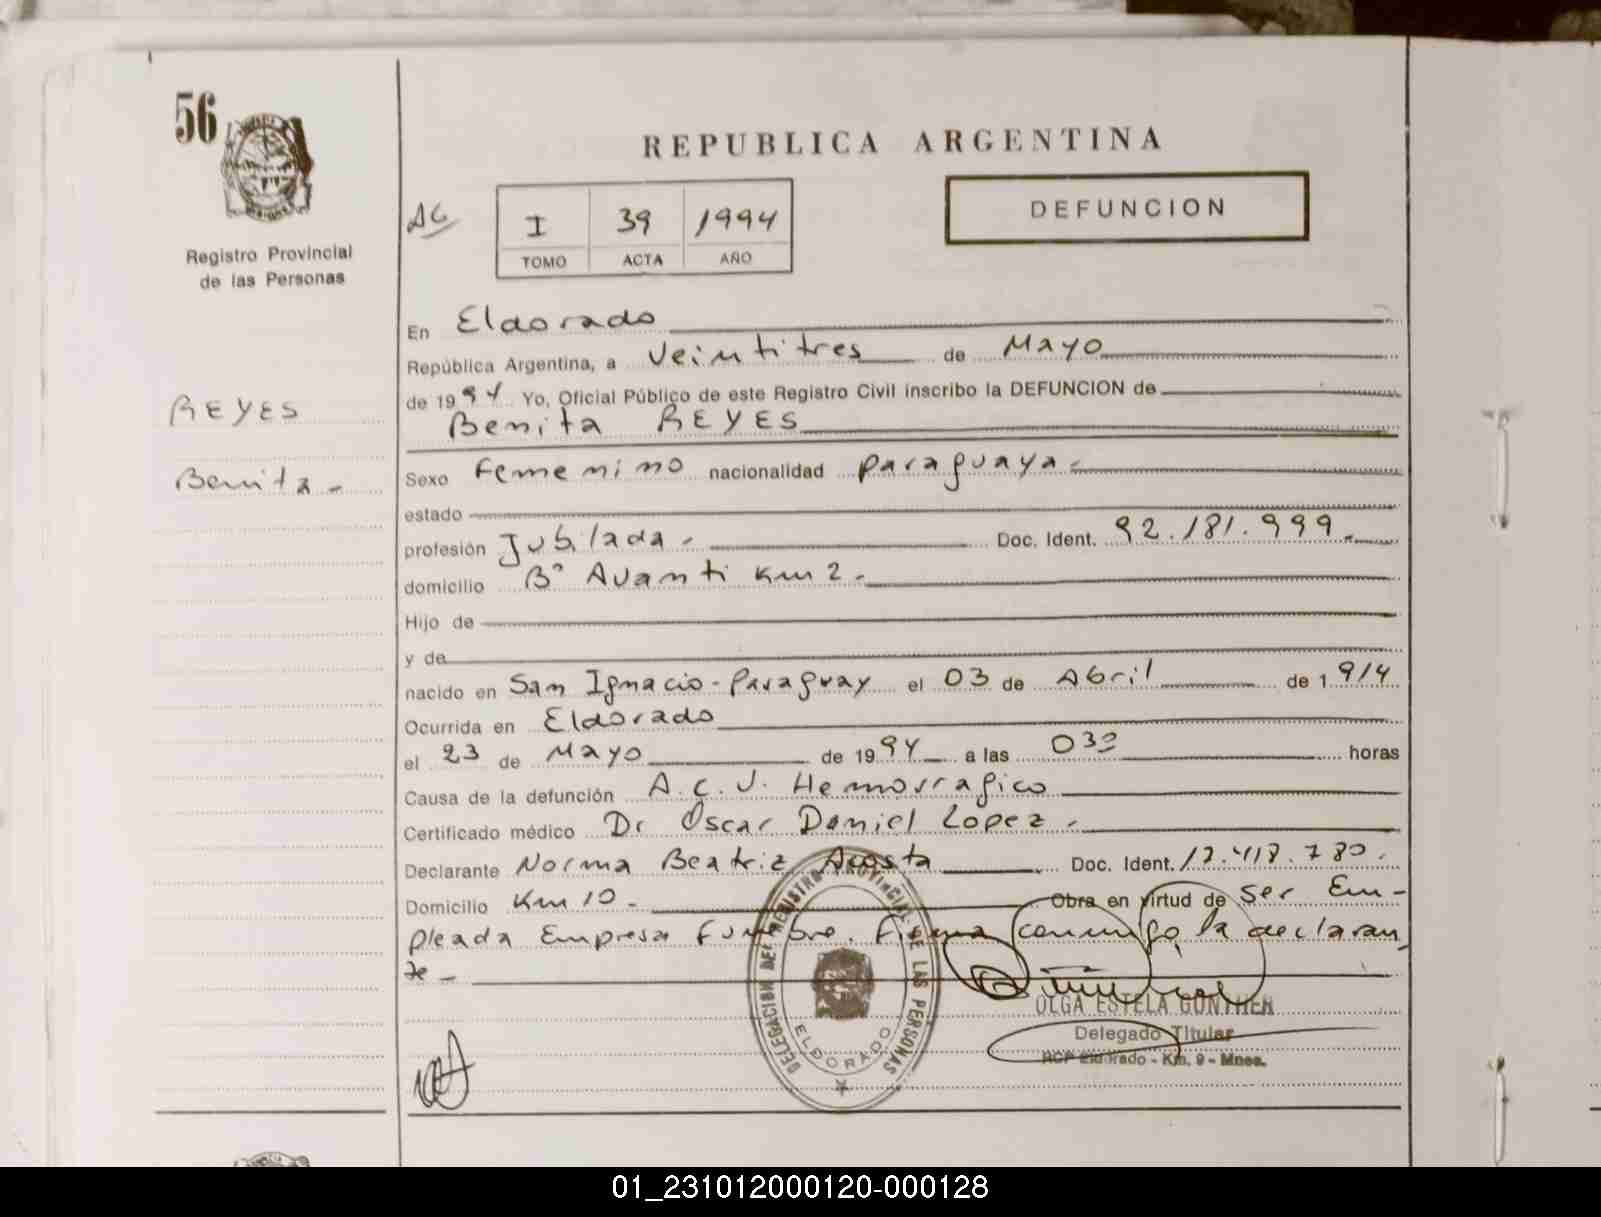 56
REPUBLICA ARGENTINA
Registro Provincial
de las Personas
I 39 1994
TOMO ACTA AÑO
DEFUNCION
En Eldorado
República Argentina, a Veintitres de Mayo
de 1994 Yo, Oficial Público de este Registro Civil inscribo la DEFUNCION de
REYES
Benita REYES
Benita -
Sexo Femenino nacionalidad Paraguaya -
estado
profesión Jubilada - Doc. Ident. 92.181.999.-
domicilio B° Avanti Km 2.-
Hijo de
y de
nacido en San Ignacio - Paraguay el 03 de Abril de 1914
Ocurrida en Eldorado
el 23 de Mayo de 1994 a las horas
Causa de la defunción A.C.V. Hemorragico
Certificado médico Dr Oscar Daniel Lopez -
Declarante Norma Beatriz Acosta Doc. Ident.
Domicilio Km 10 - Obra en virtud de Ser Em-
pleada Empresa Funebre. Firma conmigo la declaran
te -
DELEGACION DEL REGISTRO PROVINCIAL DE LAS PERSONAS
ELDORADO
OLGA ESTELA GUNTHER
Delegado Titular
RCP Eldorado - Km. 9 - Mnes.
01_231012000120-000128